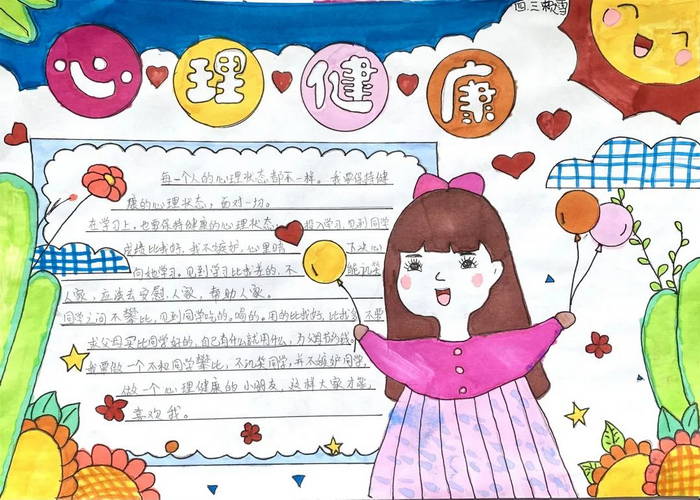 四.三 赖雪
心理健康
每一个人的心理状态都不一样。我要保持健
康的心理状态，面对一切。
在学习上，也要保持健康的心理状态，投入学习，见到同学
成绩比我好，我不嫉妒，心里暗 下决心
向她学习。见到学习比我差的，不 能讥笑
人家，应该去安慰人家，帮助人家。
同学之间不攀比，见到同学吃的，喝的，用的比我好，比我多，不要
求父母买比同学好的，自己有什么就用什么，为父母节约钱。
我要做一个不和同学攀比，不讥笑同学，并不嫉妒同学，
做一个心理健康的小朋友，这样大家才能
喜欢我。